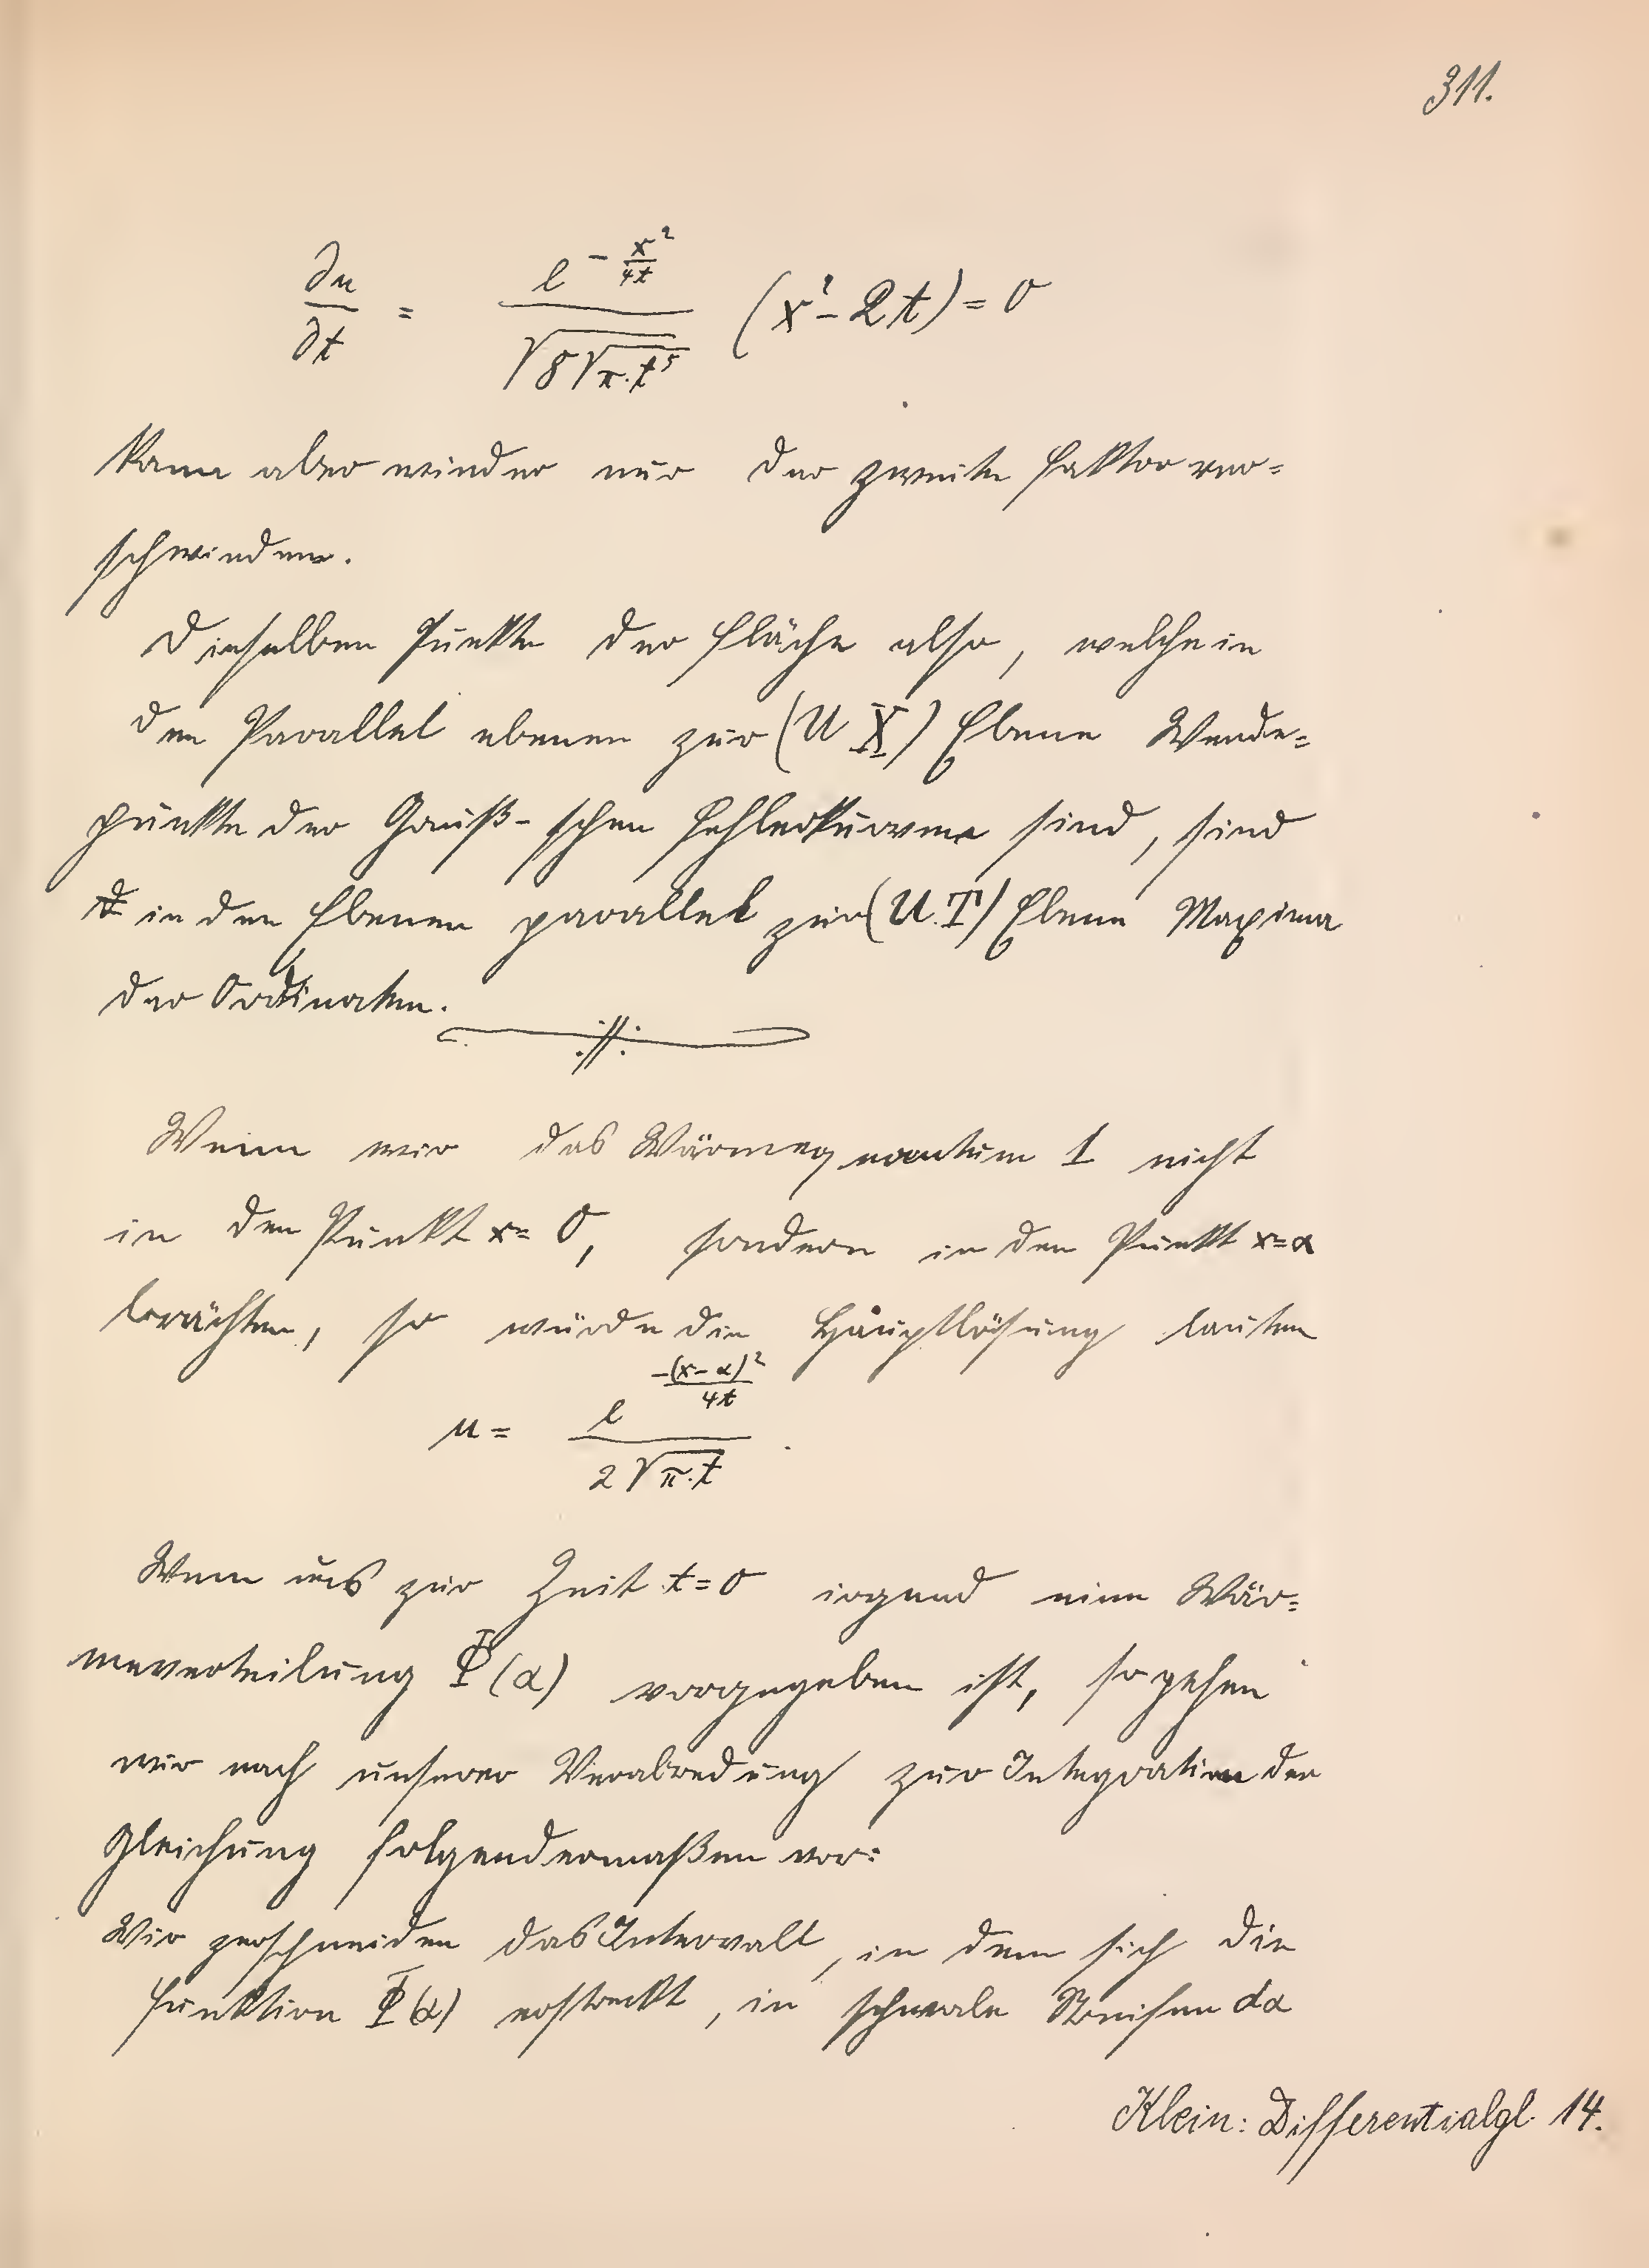 311.
∂u/∂t = e^{-x²/4t} / √8√π.t⁵ (x² - 2t) = 0
kann aber wieder nur der zweite Faktor ver=
schwinden.
Dieselben Punkte der Fläche also, welche in
den Parallel ebenen zur (U X) Ebene Wende=
punkte der Gauß-schen Fehlerkurven sind, sind
in den Ebenen parallel zur (U.T) Ebene Maxima
der Ordinaten.
Wenn wir das Wärmequantum 1 nicht
in den Punkt x = 0, sondern in den Punkt x = α
brächten, so würde die Hauptlösung lauten
u = e^{-(x-α)²/4t} / 2√π.t .
Wenn uns zur Zeit t = 0 irgend eine Wär=
meverteilung Φ(α) vorgegeben ist, so gehen
wir nach unserer Verabredung zur Integration der
Gleichung folgendermaßen vor:
Wir zerschneiden das Intervall, in dem sich die
Funktion Φ(α) erstreckt, in schmale Streifen dα
Klein: Differentialgl. 14.